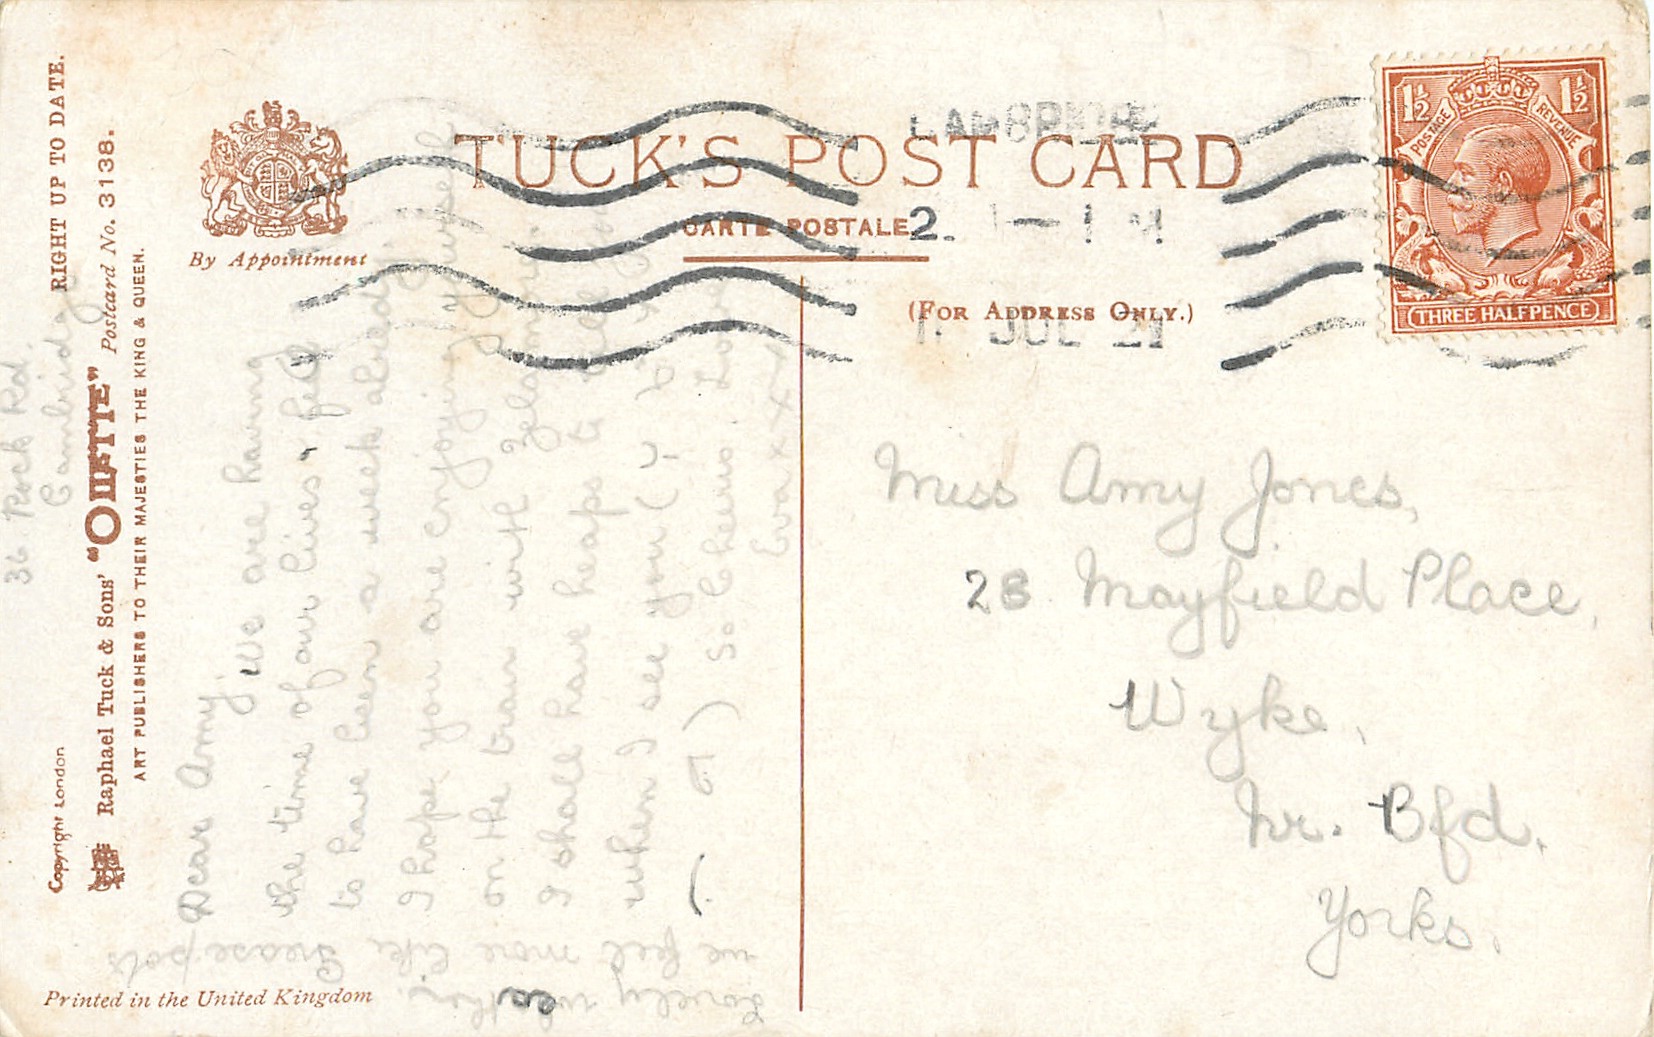 TUCK'S POST CARD
CARTE POSTALE
(FOR ADDRESS ONLY.)
By Appointment
2
JUL 21
1½ 1½
POSTAGE REVENUE
THREE HALFPENCE
Miss Amy Jones,
28 Mayfield Place,
Wyke,
Nr. Bfd,
Yorks.
36 Rock Rd.
Cambridge
Dear Amy,
We are having
the time of our lives & feel
to have been a week already.
I hope you are enjoying yourself
on the train with
I shall have heaps to tell you
when I see you (
) So Cheerio, Love
Eva x x x
Lovely weather.
we feel more like grease pots
Copyright London
RIGHT UP TO DATE.
Raphael Tuck & Sons' "OILETTE" Postcard No. 3138.
ART PUBLISHERS TO THEIR MAJESTIES THE KING & QUEEN.
Printed in the United Kingdom